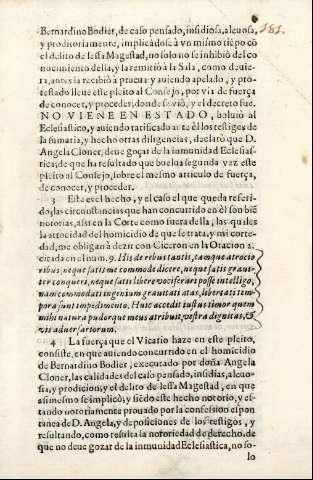 181.
Bernardino Bodier, de caso pensado, insidiosa, aleuosa,
y proditoriamente, implicãdose à vn mismo tiẽpo cõ
el delito de lessa Magestad, no solo no se inhibiò del co
nocimiento della, y la remitiò a la Sala, como deuie
ra, antes la recibiò à prueua: y auiendo apelado, y pro-
testado lleue este pleito al Consejo, por via de fuerça
de conocer, y proceder, donde se viò, y el decreto fue,
NO VIENE EN ESTADO, boluiò al
Eclesiastico, y auiendo ratificado ante èl los testigos de
la sumaria, y hecho otras diligencias, declarò que D.
Angela Cloner, deue goçar de la inmunidad Eclesias-
tica; de que ha resultado que buelua segunda vez este
pleito al Consejo, sobre el mesmo articulo de fuerça,
de conocer, y proceder.
3 Este es el hecho, y el caso el que queda referi-
do; las circunstancias que han concurrido en èl son biẽ
notorias, assi en la Corte como fuera della, las quales
la atrocidad del homicidio de que se trata, y mi corte-
dad, me obligan à dezir con Ciceron en la Oracion 2.
citada en el num. 9. His de rebus tantis, tamque atrocio
ribus, neque satis me commode dicere, neque satis grauit-
ter conqueri, neque satis libere vociferari posse intelligo,
nam commoditati ingenium grauitati ætas, libertati tem-
pora sunt impedimento. Huic accedit iustius timor quem
mihi natura pudorque meus atribuit, vestra dignitas, &
vis aduersartorum.
4 La fuerça que el Vicario haze en este pleito,
consiste, en que auiendo concurrido en el homicidio
de Bernardino Bodier, executado por doña Angela
Cloner, las calidades del caso pensado, insidias, aleuo-
sia, y prodicion, y el delito de lessa Magestad, en que
asimesmo se implicò; y siẽdo este hecho notorio, y es-
tando notoriamente prouado por la confession espon
tanea de D. Angela, y deposiciones de los testigos, y
resultando, como resulta la notoriedad de derecho, de
que no deue gozar de la inmunidad Eclesiastica, no so-
lo